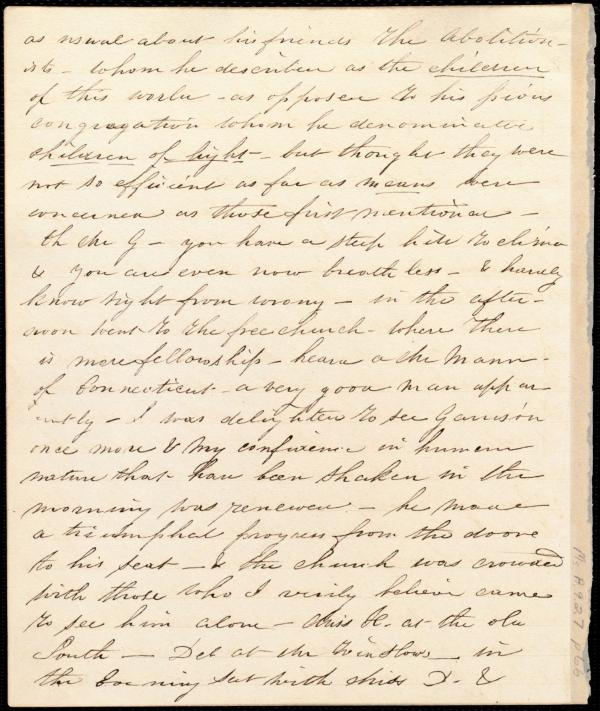 as usual about his friends the Abolition-
ists - whom he describes as the children
of this world - as opposed to his pious
congregation whom he denominates
children of light - but thought they were
not so efficient as far as means were
concerned as those first mentioned -
Mr G - you have a steep hill to climb
& you are even now breathless - & hardly
know right from wrong - in the after-
noon went to the free church - where there
is more fellowship - heard a Mr Mann -
of Connecticut - a very good man appar-
ently - I was delighted to see Garrison
once more & my confidence in human
nature that had been shaken in the
morning was renewed - he made
a triumphal progress from the door
to his seat - & the church was crowded
with those who I verily believe came
to see him alone - Miss C. at the old
South - Deb at the Winslows - in
the Evening sat with Miss D. &
Ms A.9.2.7 p 66